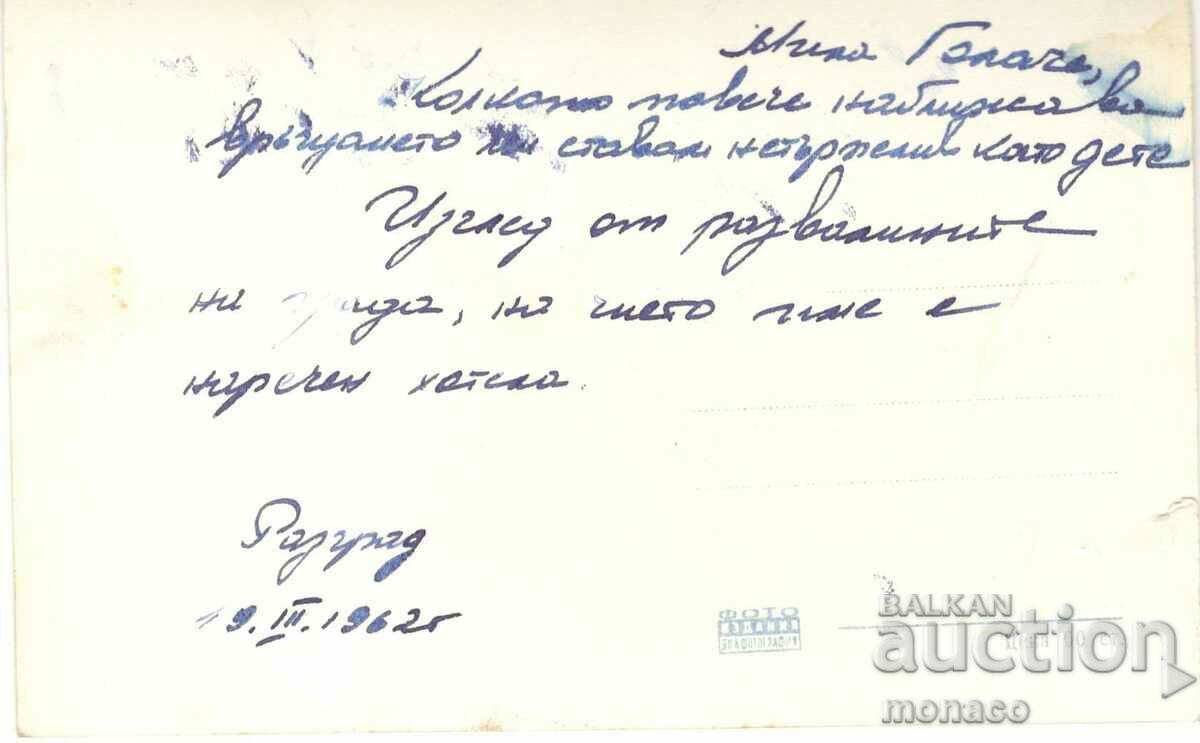 Мила
Колкото повече наближава
връщането ми ставам нетърпелив като дете
Изглед от развалините
на града, на чието име е
наречен хотела.
Разград
19.III.1962г
ФОТО
ИЗДАНИЯ
BALKAN
auction
monaco